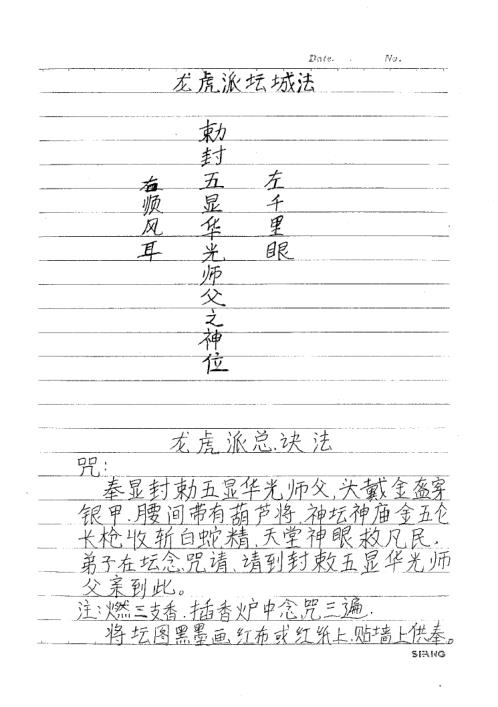 Date. . No.
龙虎派坛城法
勅封五显华光师父之神位
左千里眼
右顺风耳
龙虎派总诀法
咒:
奉显封勅五显华光师父,头戴金盔穿
银甲.腰间带有葫芦将.神坛神庙金五仑
长枪收斩白蛇精.天堂神眼救凡民.
弟子在坛念咒请.请到封敕五显华光师
父亲到此。
注:燃三支香.插香炉中念咒三遍.
将坛图黑墨画红布或红纸上.贴墙上供奉。